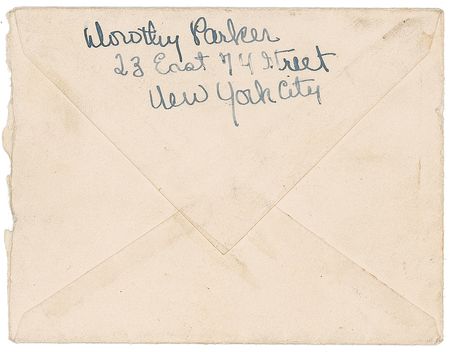 Dorothy Parker
23 East 74 Street
New York City